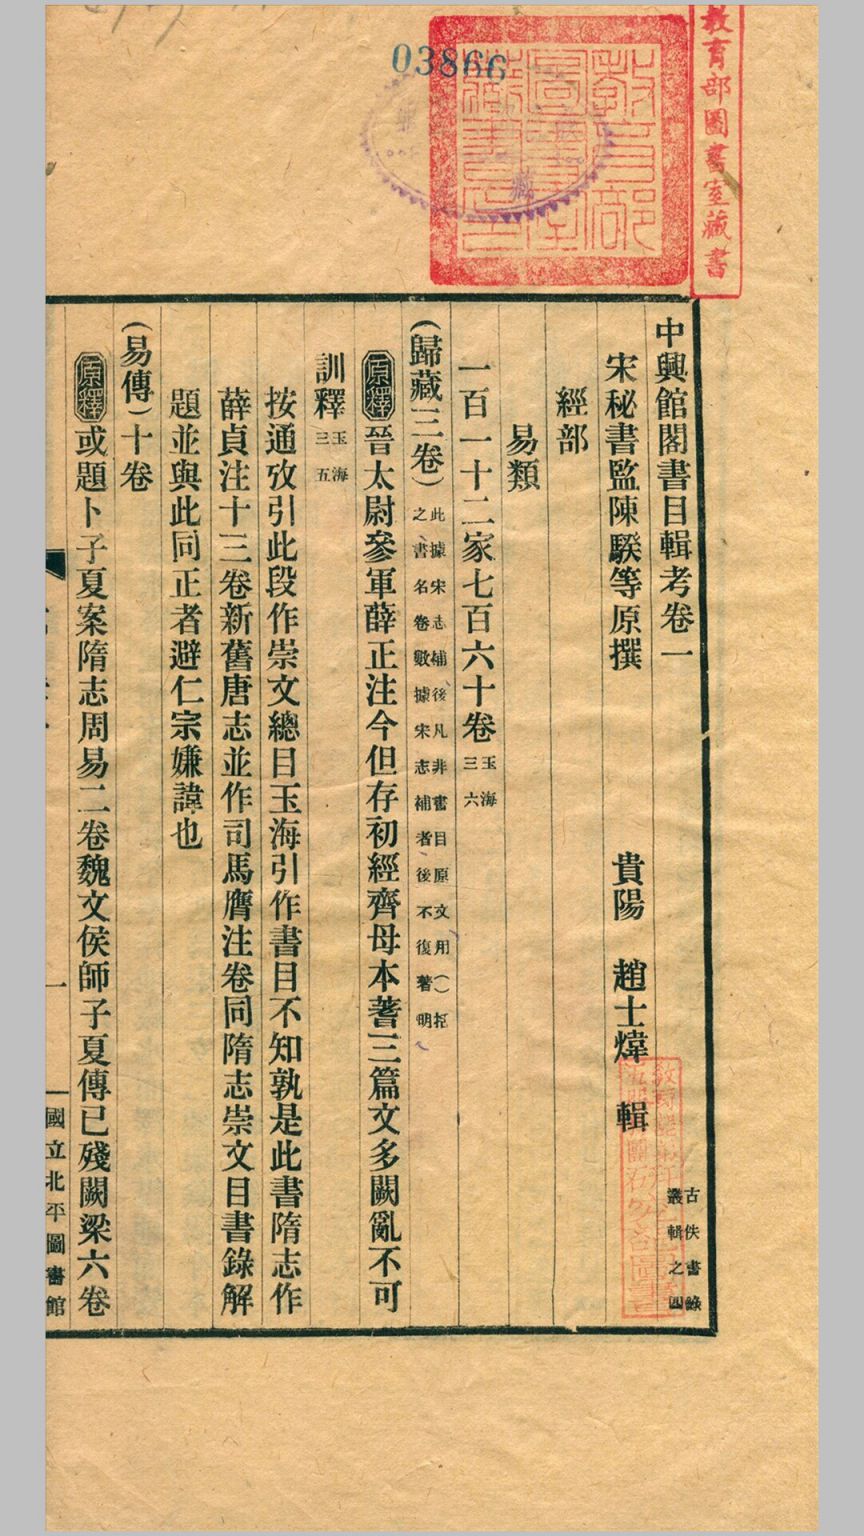 03866
教育部圖書室藏書
中興館閣書目輯考卷一
古佚書錄
叢輯之四
宋秘書監陳騤等原撰　貴陽　趙士煒　輯
經部
易類
一百一十二家七百六十卷玉海三六
(歸藏三卷)此據宋志補後凡非書目原文用()拒之書名卷數據宋志補者後不復著明
原釋晉太尉參軍薛正注今但存初經齊母本蓍三篇文多闕亂不可
訓釋玉海三五
按通攷引此段作崇文總目玉海引作書目不知孰是此書隋志作
薛貞注十三卷新舊唐志並作司馬膺注卷同隋志崇文目書錄解
題並與此同正者避仁宗嫌諱也
(易傳)十卷
原釋或題卜子夏案隋志周易二卷魏文侯師子夏傳已殘闕梁六卷
一
國立北平圖書館